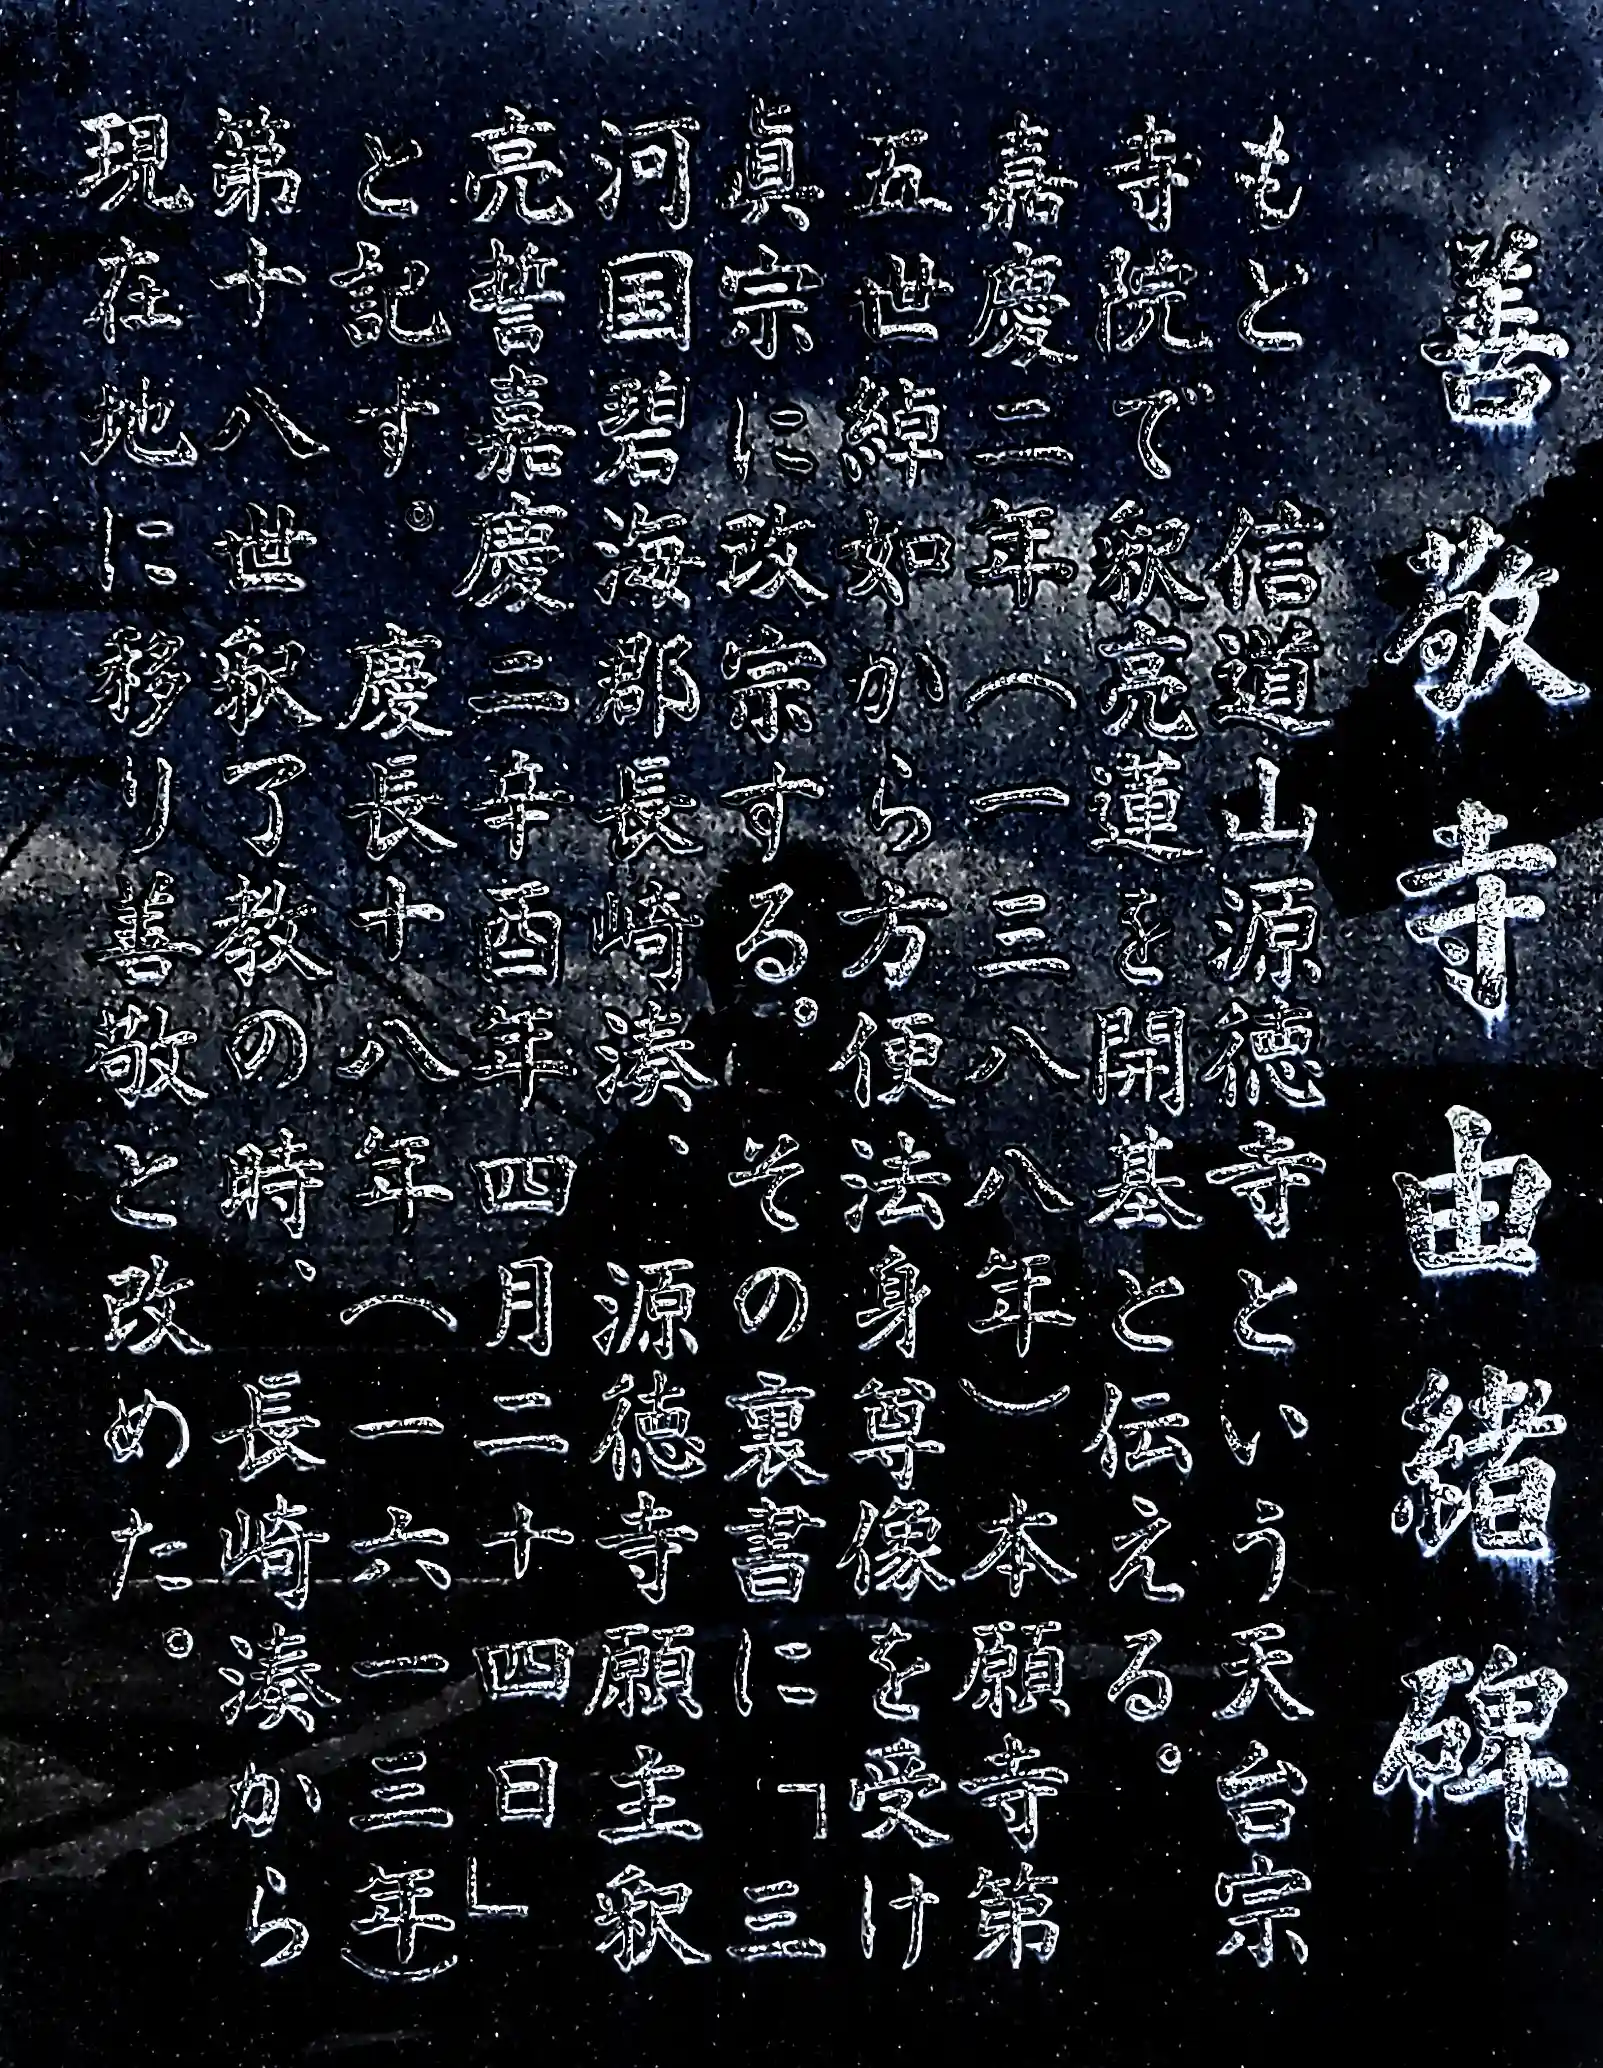 善敬寺由緒碑
もと 信道山源徳寺という天台宗
寺院で釈亮蓮を開基と伝える。
嘉慶二年（一三八八年）本願寺第
五世綽如から方便法身尊像を受け
眞宗に改宗する。その裏書に「三
河国碧海郡長崎湊、源徳寺願主釈
亮誓嘉慶二辛酉年四月二十四日」
と記す。 慶長十八年（一六一三年）
第十八世釈了教の時、長崎湊から
現在地に移り善敬と改めた。